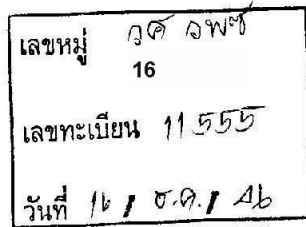 เลขหมู่ วศ วพช
16
เลขทะเบียน 11555
วันที่ 16 / ธ.ค. / 46